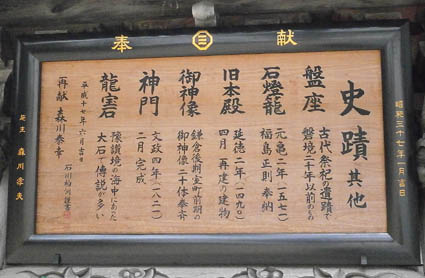 奉 献
史蹟 其他
盤座 古代祭祀の遺蹟で
盤境二千年以前のもの
石燈籠 元亀二年(一五七一)
福島正則奉納
旧本殿 延徳二年(一四九〇)
四月 再建の建物
御神像 鎌倉後期室町前期の
御神像二十体奉斎
神門 文政四年(一八二一)
二月 完成
龍宮石 陵讃境の海中にあった
大石で伝説が多い
平成十七年六月吉日
再献 森川泰幸
昭和三十七年一月吉日
施主 森川孝夫